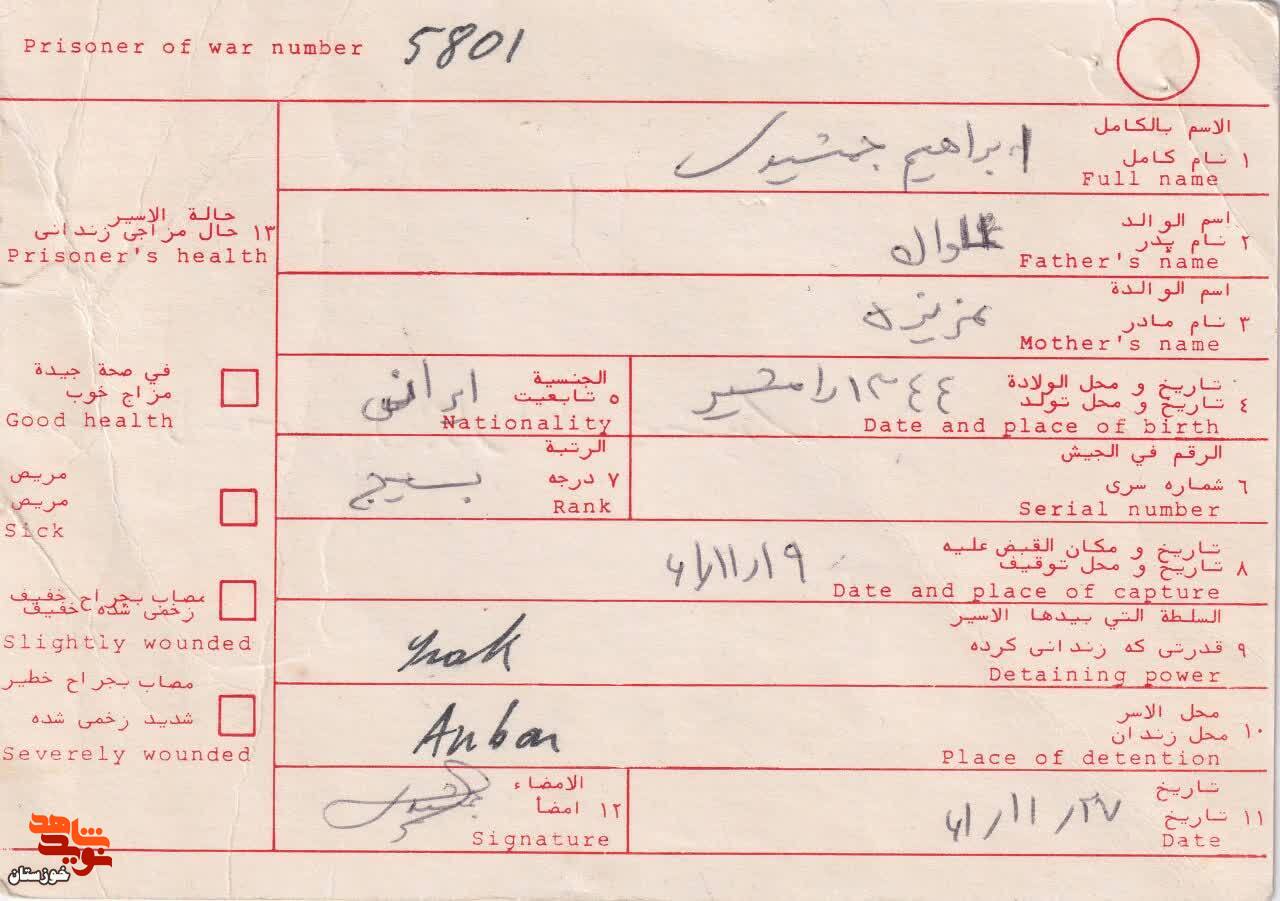 Prisoner of war number 5801
الاسم بالكامل
۱ نام کامل ابراهیم جمشیدی
Full name
اسم الوالد
۲ نام پدر
Father's name
اسم الوالدة
۳ نام مادر
Mother's name
تاريخ و محل الولادة
٤ تاریخ و محل تولد ١٣٤٤ رامشیر
Date and place of birth
الجنسية
٥ تابعیت ایرانی
Nationality
الرقم في الجيش
٦ شماره سری
Serial number
الرتبة
۷ درجه بسیج
Rank
تاريخ و مكان القبض عليه
۸ تاریخ و محل توقیف ۶۱/۱۱/۱۹
Date and place of capture
السلطة التي بيدها الاسير
۹ قدرتی که زندانی کرده
Detaining power Irak
محل الاسر
۱۰ محل زندان
Place of detention Anbar
تاريخ
۱۱ تاریخ ۶۱/۱۱/۲۷
Date
الامضاء
۱۲ امضأ
Signature
حالة الاسير
۱۳ حال مزاجی زندانی
Prisoner's health
في صحة جيدة
مزاج خوب
Good health
مريض
مریض
Sick
مصاب بجراح خفيف
زخمی شده خفیف
Slightly wounded
مصاب بجراح خطير
شدید زخمی شده
Severely wounded
نوید شاهد
خوزستان